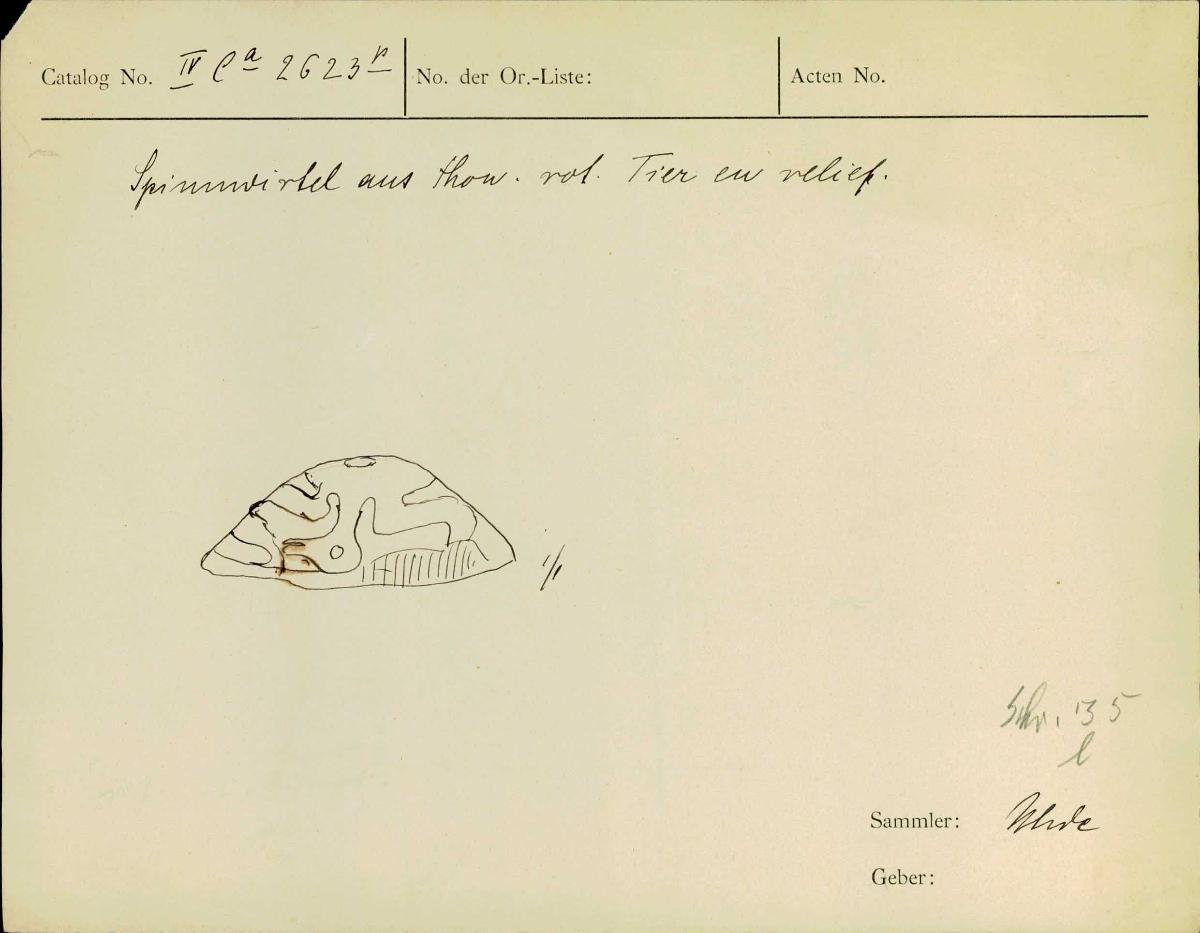 Catalog No. IV Ca 2623 No. der Or.-Liste: Acten No.
Spinnwirtel aus Thon. rot. Tier en relief.
1/1
Schr. 135
l
Sammler: Uhde
Geber: